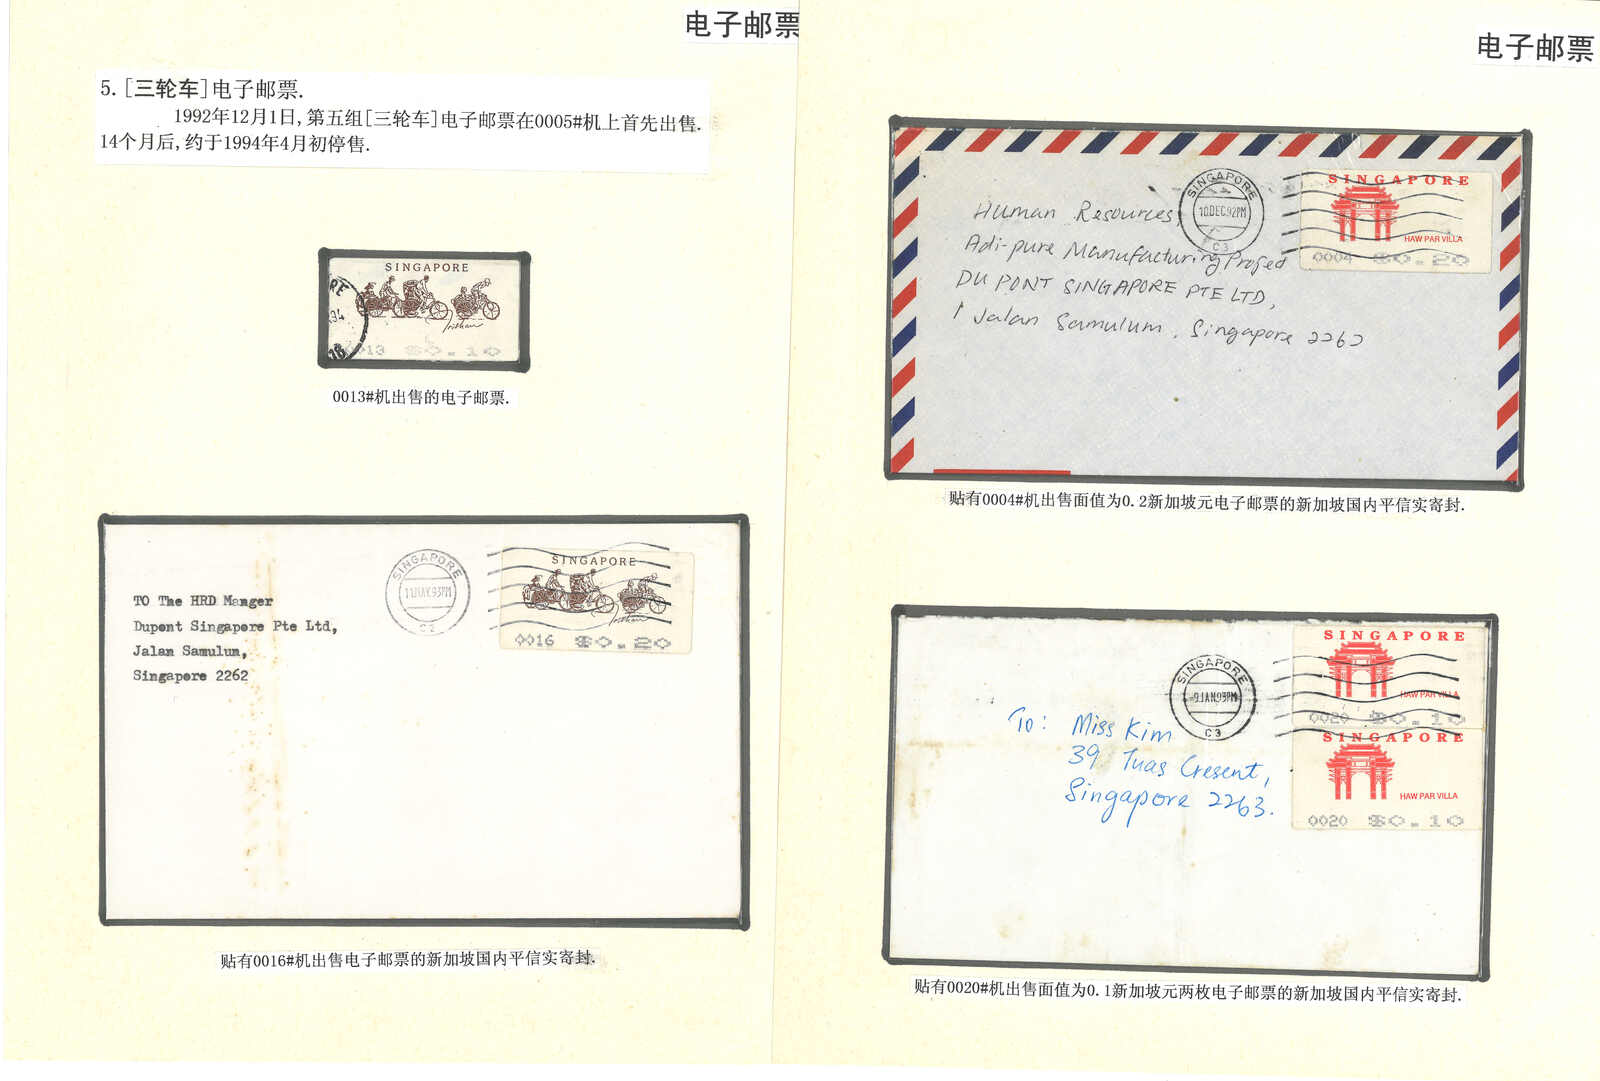 电子邮票
5. [三轮车]电子邮票.
1992年12月1日,第五组[三轮车]电子邮票在0005#机上首先出售.
14个月后,约于1994年4月初停售.
SINGAPORE
0013#机出售的电子邮票.
SINGAPORE
C2
SINGAPORE
0016 $0.20
TO The HRD Manger
Dupont Singapore Pte Ltd,
Jalan Samulum,
Singapore 2262
贴有0016#机出售电子邮票的新加坡国内平信实寄封.
电子邮票
SINGAPORE
10DEC.92PM
C3
SINGAPORE
HAW PAR VILLA
0004 $0.20
Human Resources,
Adi-pure Manufacturing Project
DU PONT SINGAPORE PTE LTD,
1 Jalan Samulum, Singapore 2262
贴有0004#机出售面值为0.2新加坡元电子邮票的新加坡国内平信实寄封.
SINGAPORE
C3
SINGAPORE
HAW PAR VILLA
0020 $0.10
SINGAPORE
HAW PAR VILLA
0020 $0.10
To: Miss Kim
39 Tuas Cresent,
Singapore 2263.
贴有0020#机出售面值为0.1新加坡元两枚电子邮票的新加坡国内平信实寄封.